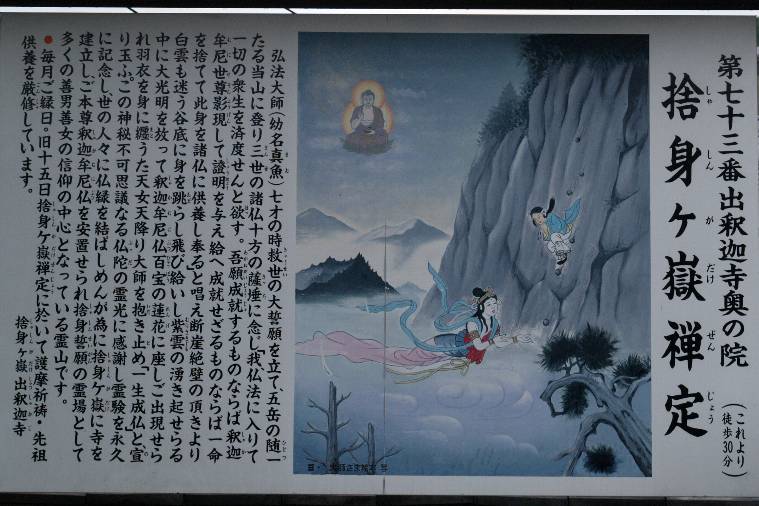 第七十三番出釈迦寺奥の院
捨身ケ嶽禅定
しゃしんがだけぜんじょう
(これより徒歩30分)
弘法大師(幼名真魚)七才の時救世の大誓願を立て、五岳の随一
たる当山に登り三世の諸仏十方の薩埵に念じ「我仏法に入りて
一切の衆生を済度せんと欲す。吾願成就するものならば釈迦
牟尼世尊影現して證明を与え給へ成就せざるものならば一命
を捨てて此身を諸仏に供養し奉る」と唱え断崖絶壁の頂きより
白雲も迷う谷底に身を跳らし飛び給いし紫雲の湧き起せらる
中に大光明を放って釈迦牟尼仏百宝の蓮花に座しご出現せら
れ羽衣を身に纒うた天女天降り大師を抱き止め「一生成仏」と宣
り玉ふ。この神秘不可思議なる仏陀の霊光に感謝し霊験を永久
に記念し世の人々に仏縁を結ばしめんが為に捨身ケ嶽に寺を
建立し、ご本尊釈迦牟尼仏を安置せられ捨身誓願の霊場として
多くの善男善女の信仰の中心となっている霊山です。
●毎月ご縁日。旧十五日捨身ケ嶽禅定に於いて護摩祈祷・先祖
供養を厳修しています。
捨身ケ嶽 出釈迦寺